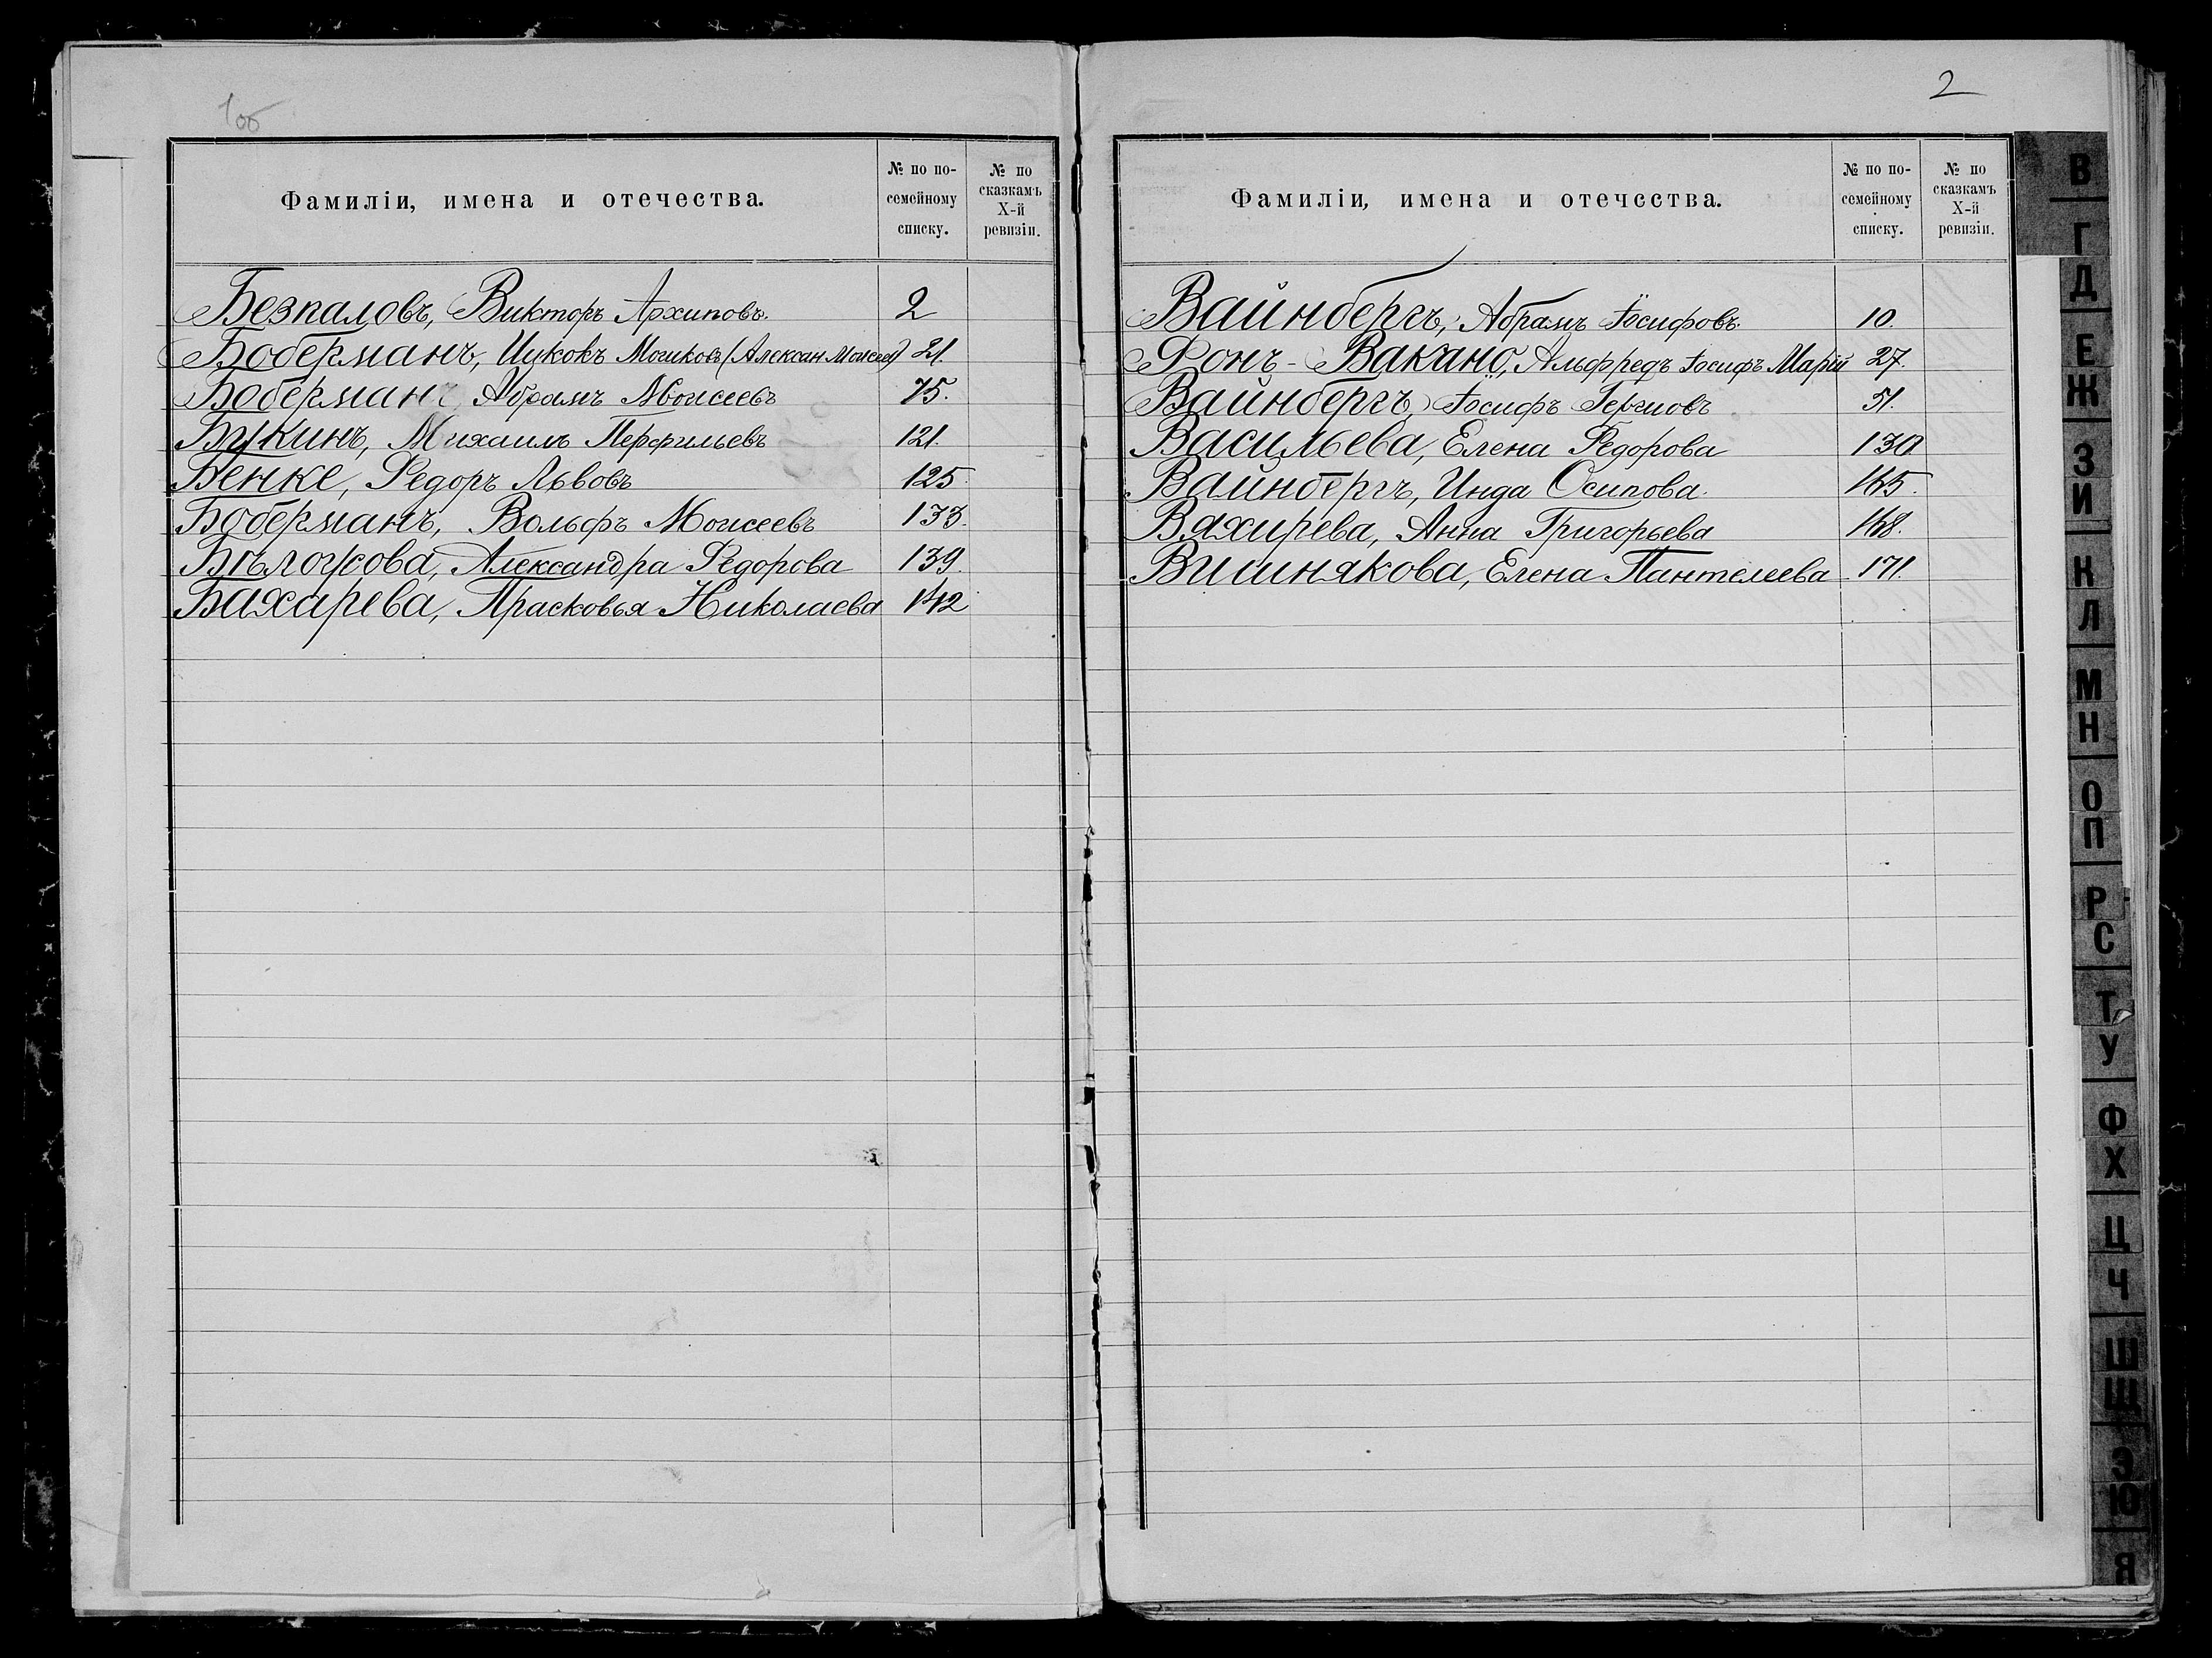 1об
Фамиліи, имена и отечества.
№ по по-
семейному
списку.
№ по
сказкамъ
X-й
ревизіи.
Безпаловъ, Викторъ Архиповъ. 2
Боберманъ, Ицкокъ Мошковъ (Алексан Моисеев) 21.
Боберманъ Абрамъ Моисеевъ 75.
Букинъ, Михаилъ Перфильевъ 121.
Бенке, Федоръ Львовъ 125.
Боберманъ, Вольфъ Моисеевъ 133.
Бѣлоусова, Александра Федорова 139.
Бахарева, Прасковья Николаева 142
2
Фамиліи, имена и отечества.
№ по по-
семейному
списку.
№ по
сказкамъ
X-й
ревизіи.
Вайнбергъ, Абрамъ Іосифовъ. 10.
Фонъ-Вакано, Альфредъ Іосифъ Марій 27.
Вайнбергъ, Іосифъ 51.
Васильева, Елена Федорова 130
Вайнбергъ, Инда Осипова. 165.
Вяхирева, Анна Григорьева 168.
Вишнякова, Елена Пантелеева 171.
В
Г
Д
Е
Ж
З
И
К
Л
М
Н
О
П
Р
С
Т
У
Ф
Х
Ц
Ч
Ш
Щ
Э
Ю
Я